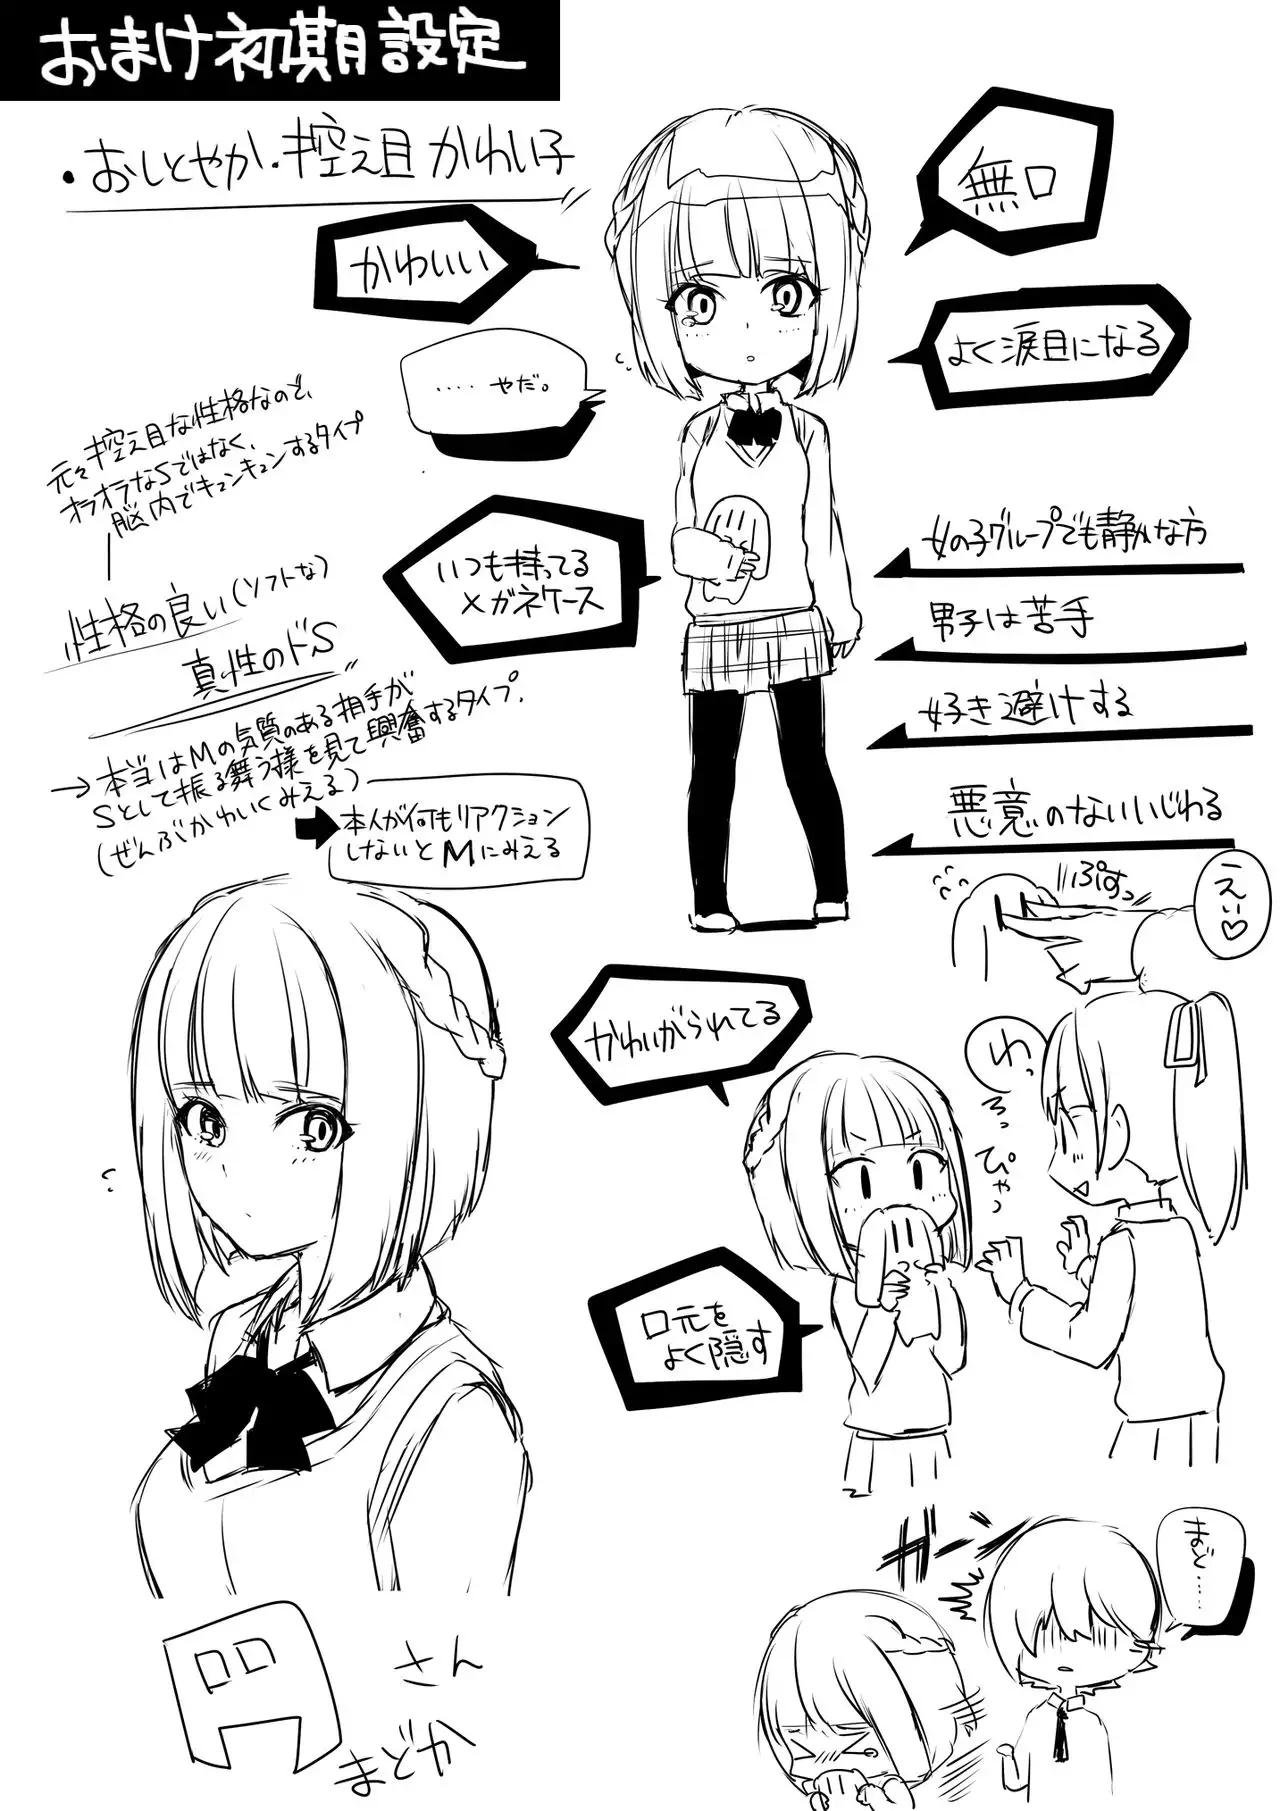 おまけ初期設定
・おしとやか・控え目かわい子
かわいい
無口
よく涙目になる
‥‥‥やだ。
元々控え目な性格なので、
オラオラなSではなく、
脳内でキュンキュンするタイプ
いつも持ってる
メガネケース
女の子グループでも静かな方
男子は苦手
好き避けする
悪意のないいじわる
性格の良い(ソフトな)
真性のドS
→本当はMの気質のある相手が
Sとして振る舞う様を見て興奮するタイプ。
(ぜんぶかわいくみえる)
本人が何もリアクション
しないとMにみえる
ぷすっ
えい♡
かわいがられてる
わっ
ぴゃっ
口元を
よく隠す
ガーン
まど‥‥
さん
まどか